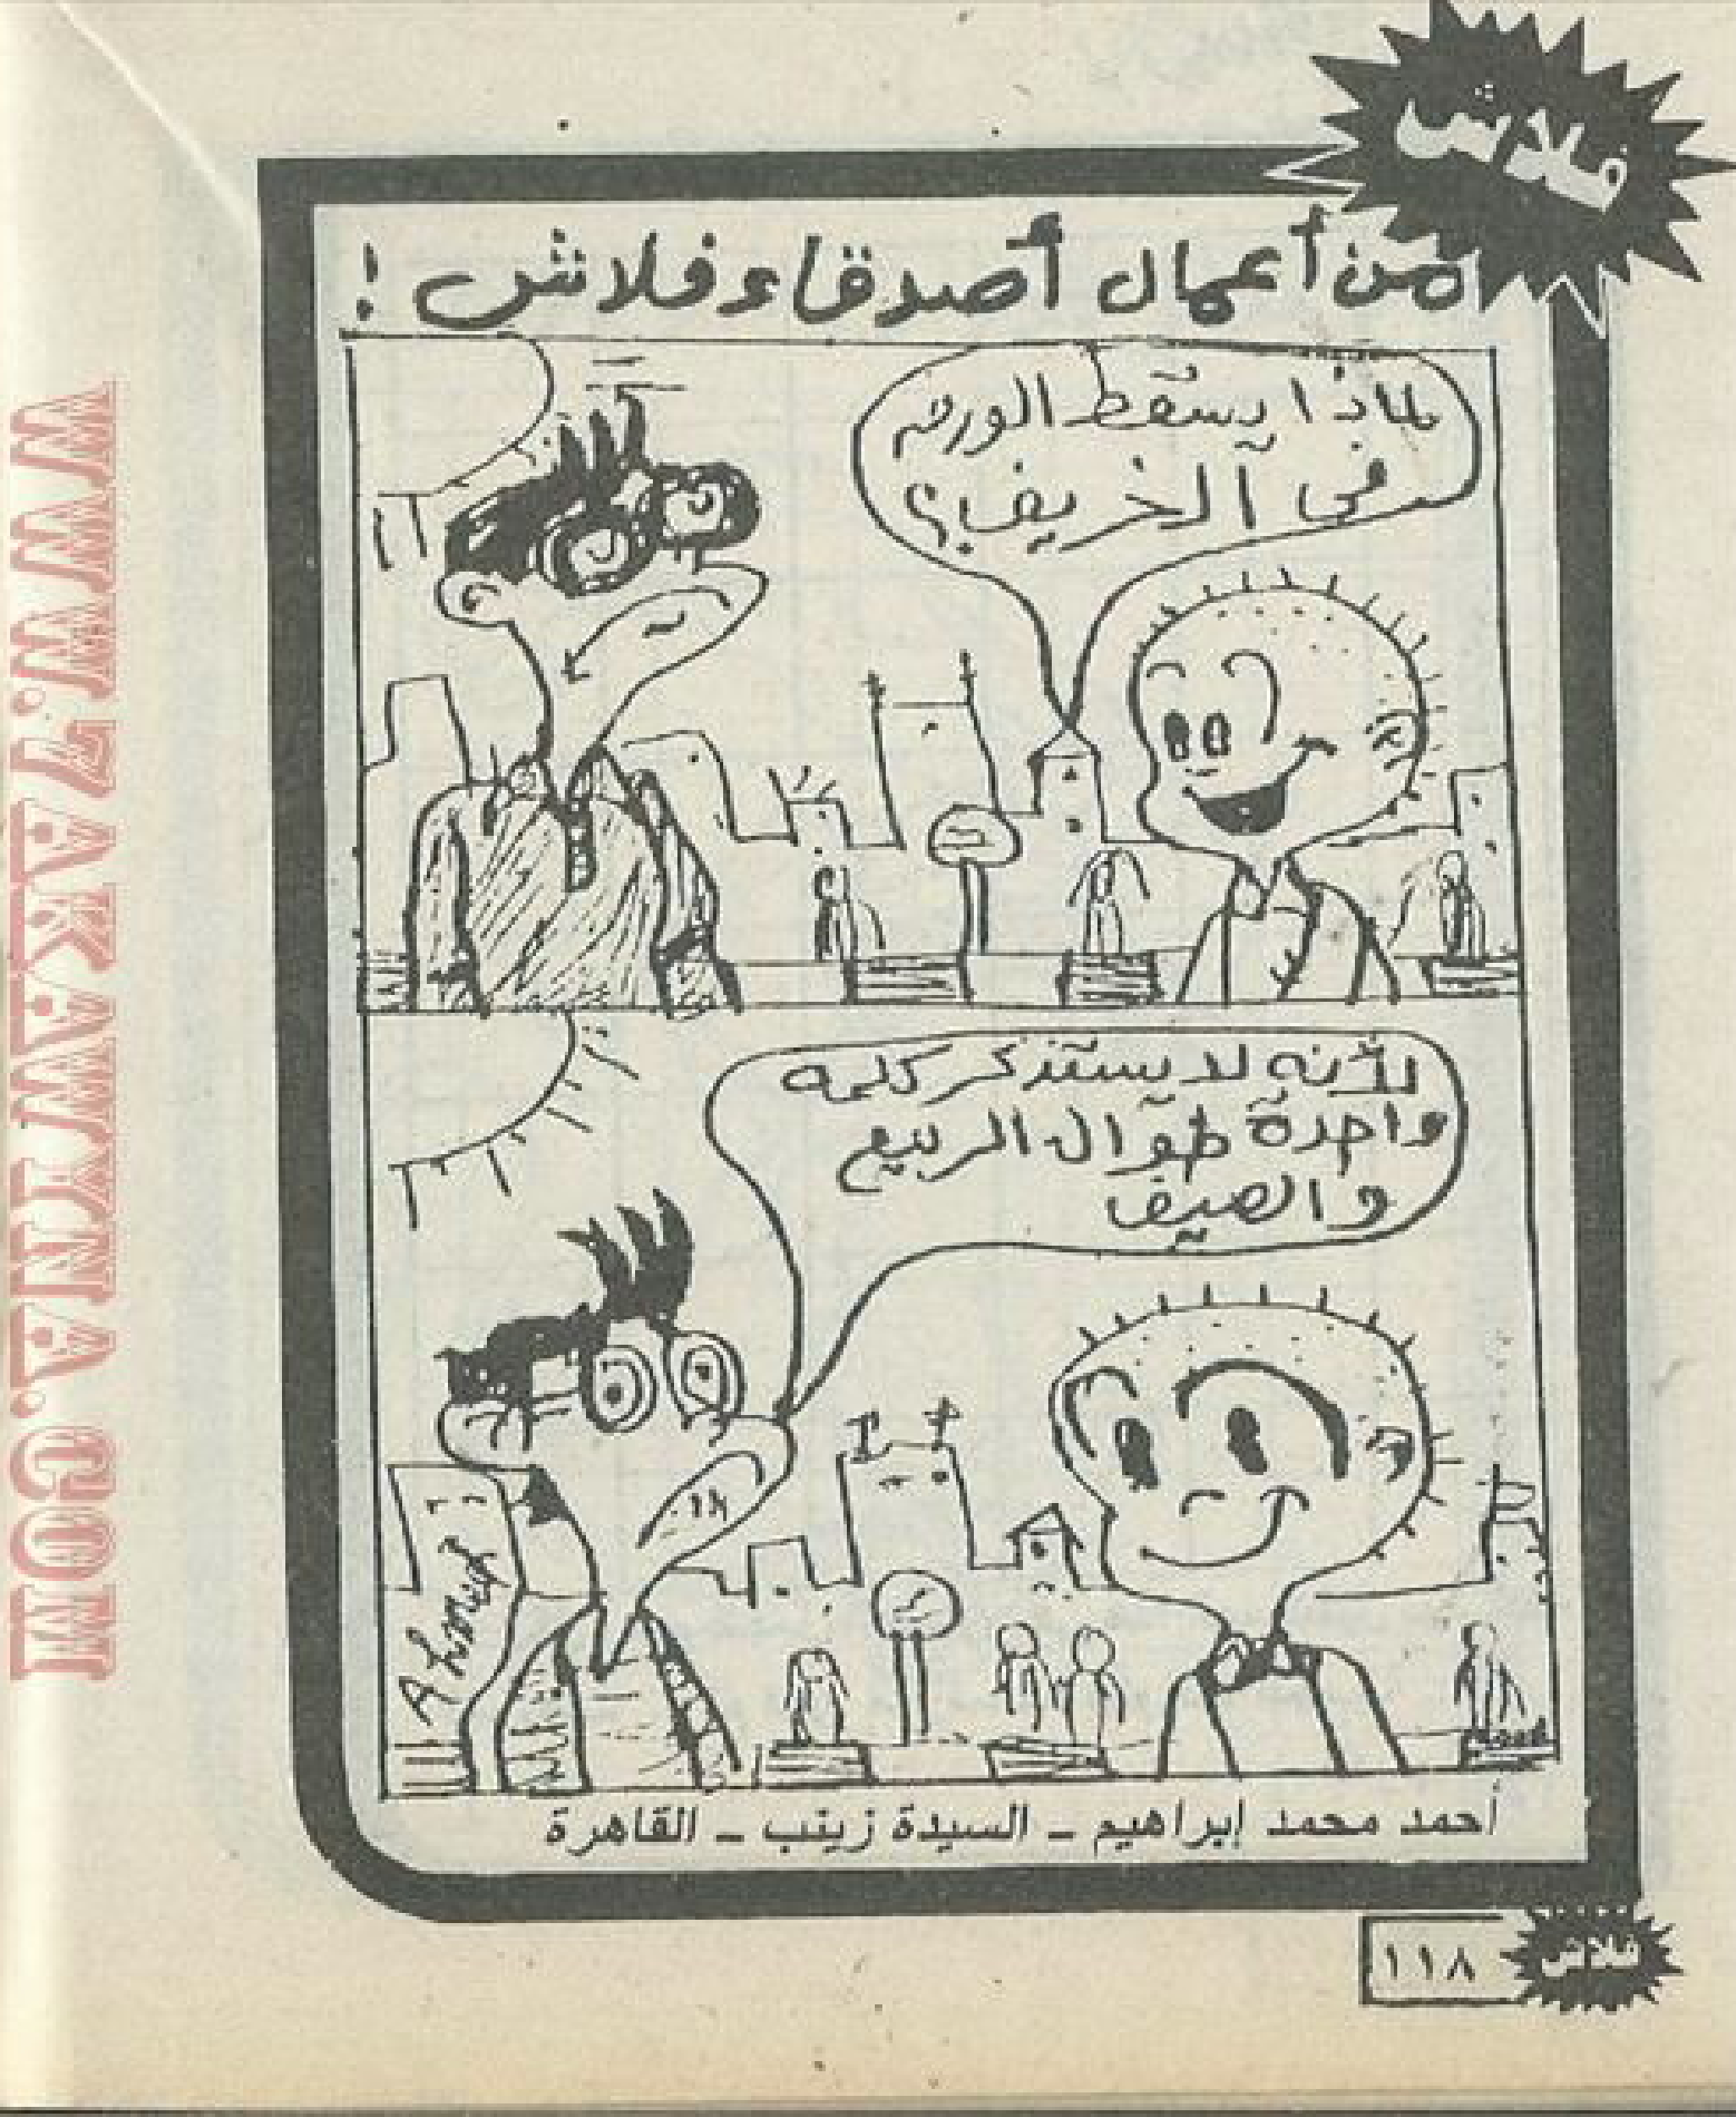 فلاش
من أعمال أصدقاء فلاش !
لماذا يسقط الورق
فى الخريف؟
لأنه لا يستذكر كلمه
واحدة طوال الربيع
والصيف
Ahmed
أحمد محمد إبراهيم - السيدة زينب - القاهرة
فلاش
١١٨
WWW.7AKAWITNA.COM